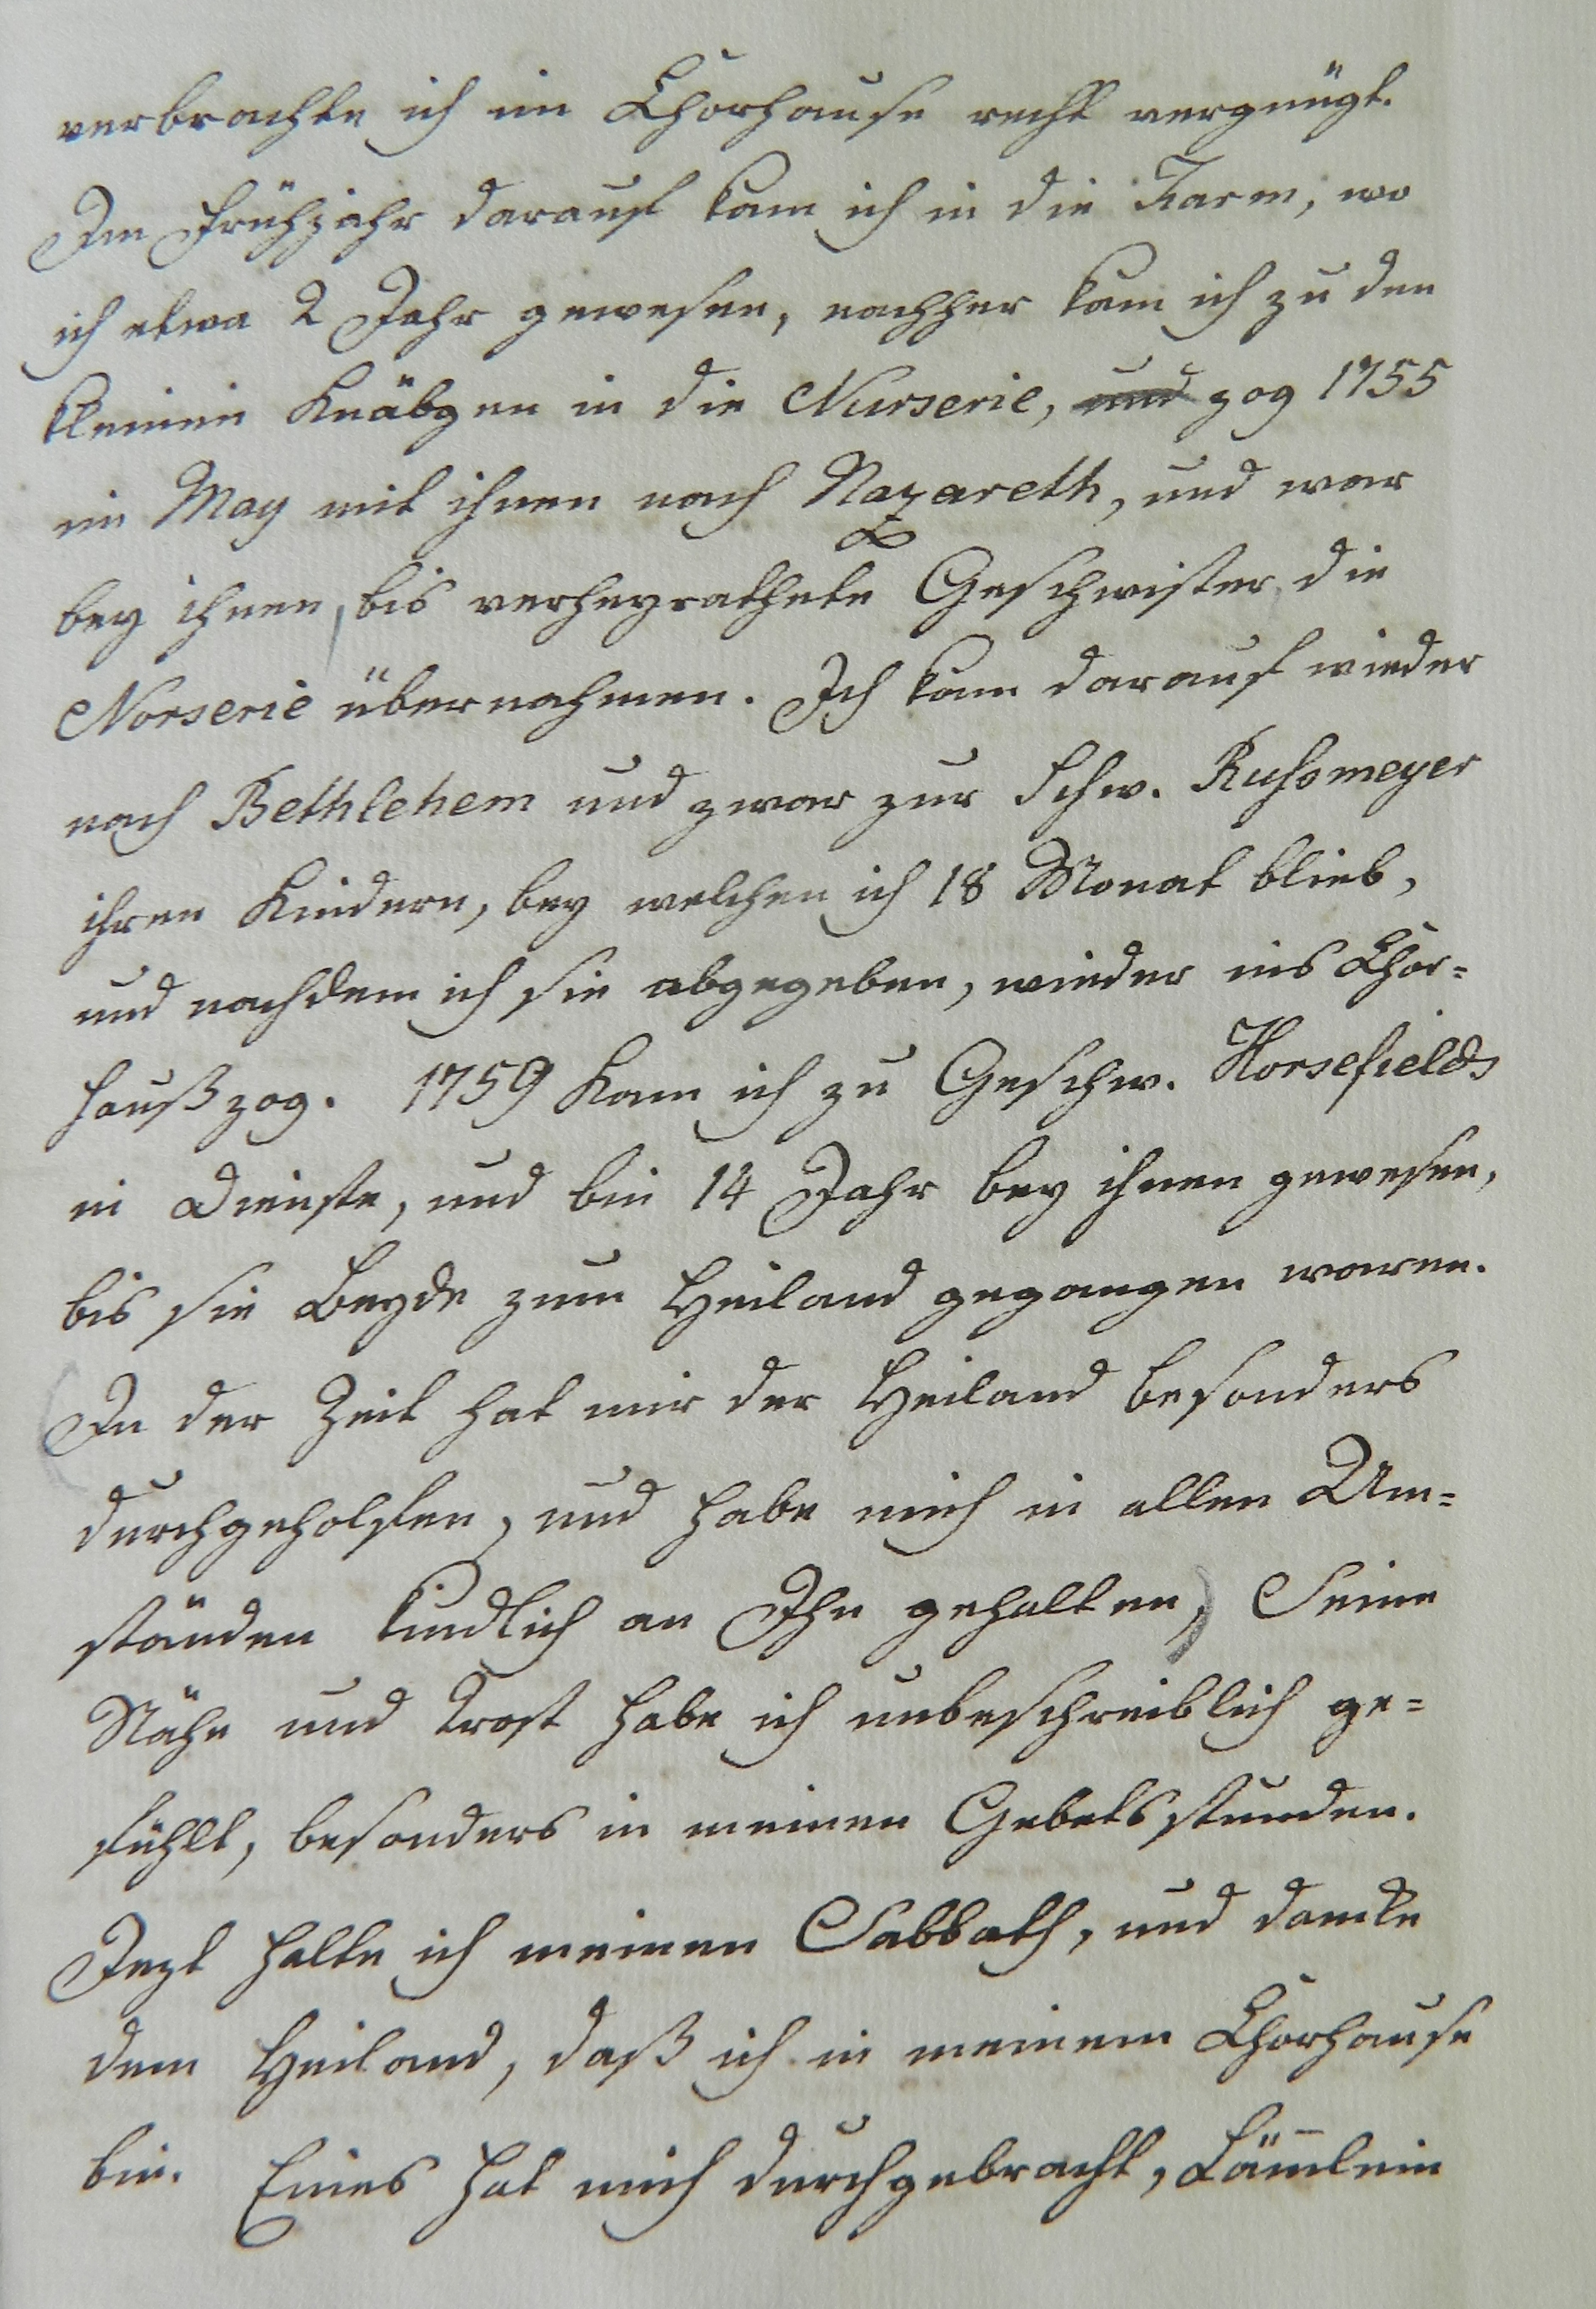 verbrachte ich im Chorhause recht vergnügt.
Im Frühjahr darauf kam ich in die Farm, wo
ich etwa 2 Jahr gewesen, nachher kam ich zu den
kleinen Knäbgen in die Nurserie, und zog 1755
im May mit ihnen nach Nazareth, und war
bey ihnen, bis verheyrathete Geschwister die
Norserie übernahmen. Ich kam darauf wieder
nach Bethlehem und zwar zur Schw. Russmeyer
ihren Kindern, bey welchen ich 18 Monat blieb,
und nachdem ich sie abgegeben, wieder ins Chor=
hauß zog. 1759 kam ich zu Geschw. Horsefields
in Dienste, und bin 14 Jahr bey ihnen gewesen,
bis sie Beyde zum Heiland gegangen waren.
In der Zeit hat mir der Heiland besonders
durchgeholfen, und habe mich in allen Um=
ständen kindlich an Ihn gehalten, Seine
Nähe und Trost habe ich unbeschreiblich ge=
fühlt, besonders in meinen Gebetsstunden.
Jezt halte ich meinen Sabbath, und dancke
dem Heiland, daß ich in meinem Chorhause
bin. Eines hat mich durchgebracht,Läm̅lein